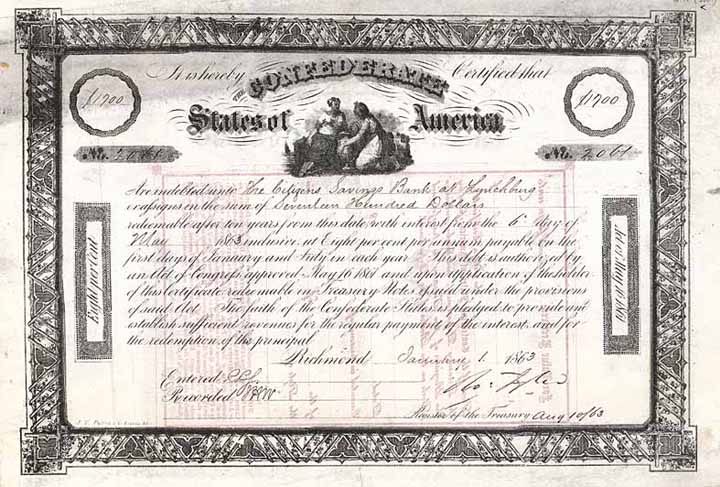 It is hereby THE CONFEDERATE Certified that
$1700 $1700
States of America
No. 2061 No. 2061
Are indebted unto The Citizens Savings Bank at Lynchburg
or assigns in the sum of Seventeen Hundred Dollars
redeemable after ten years from this date with interest from the 6th day of
May 1863 inclusive at Eight per cent per annum payable on the
first days of January and July in each year. This debt is authorized by
an Act of Congress approved May 16 1861 and upon application of the holder
of this certificate redeemable in Treasury Notes issued under the provisions
of said Act. The faith of the Confederate States is pledged to provide and
establish sufficient revenues for the regular payment of the interest, and for
the redemption of the principal
Eight per cent
Act May 16 1861
Richmond January 1. 1863
Entered
Recorded
Ro. Tyler
Register of the Treasury Aug 10/63